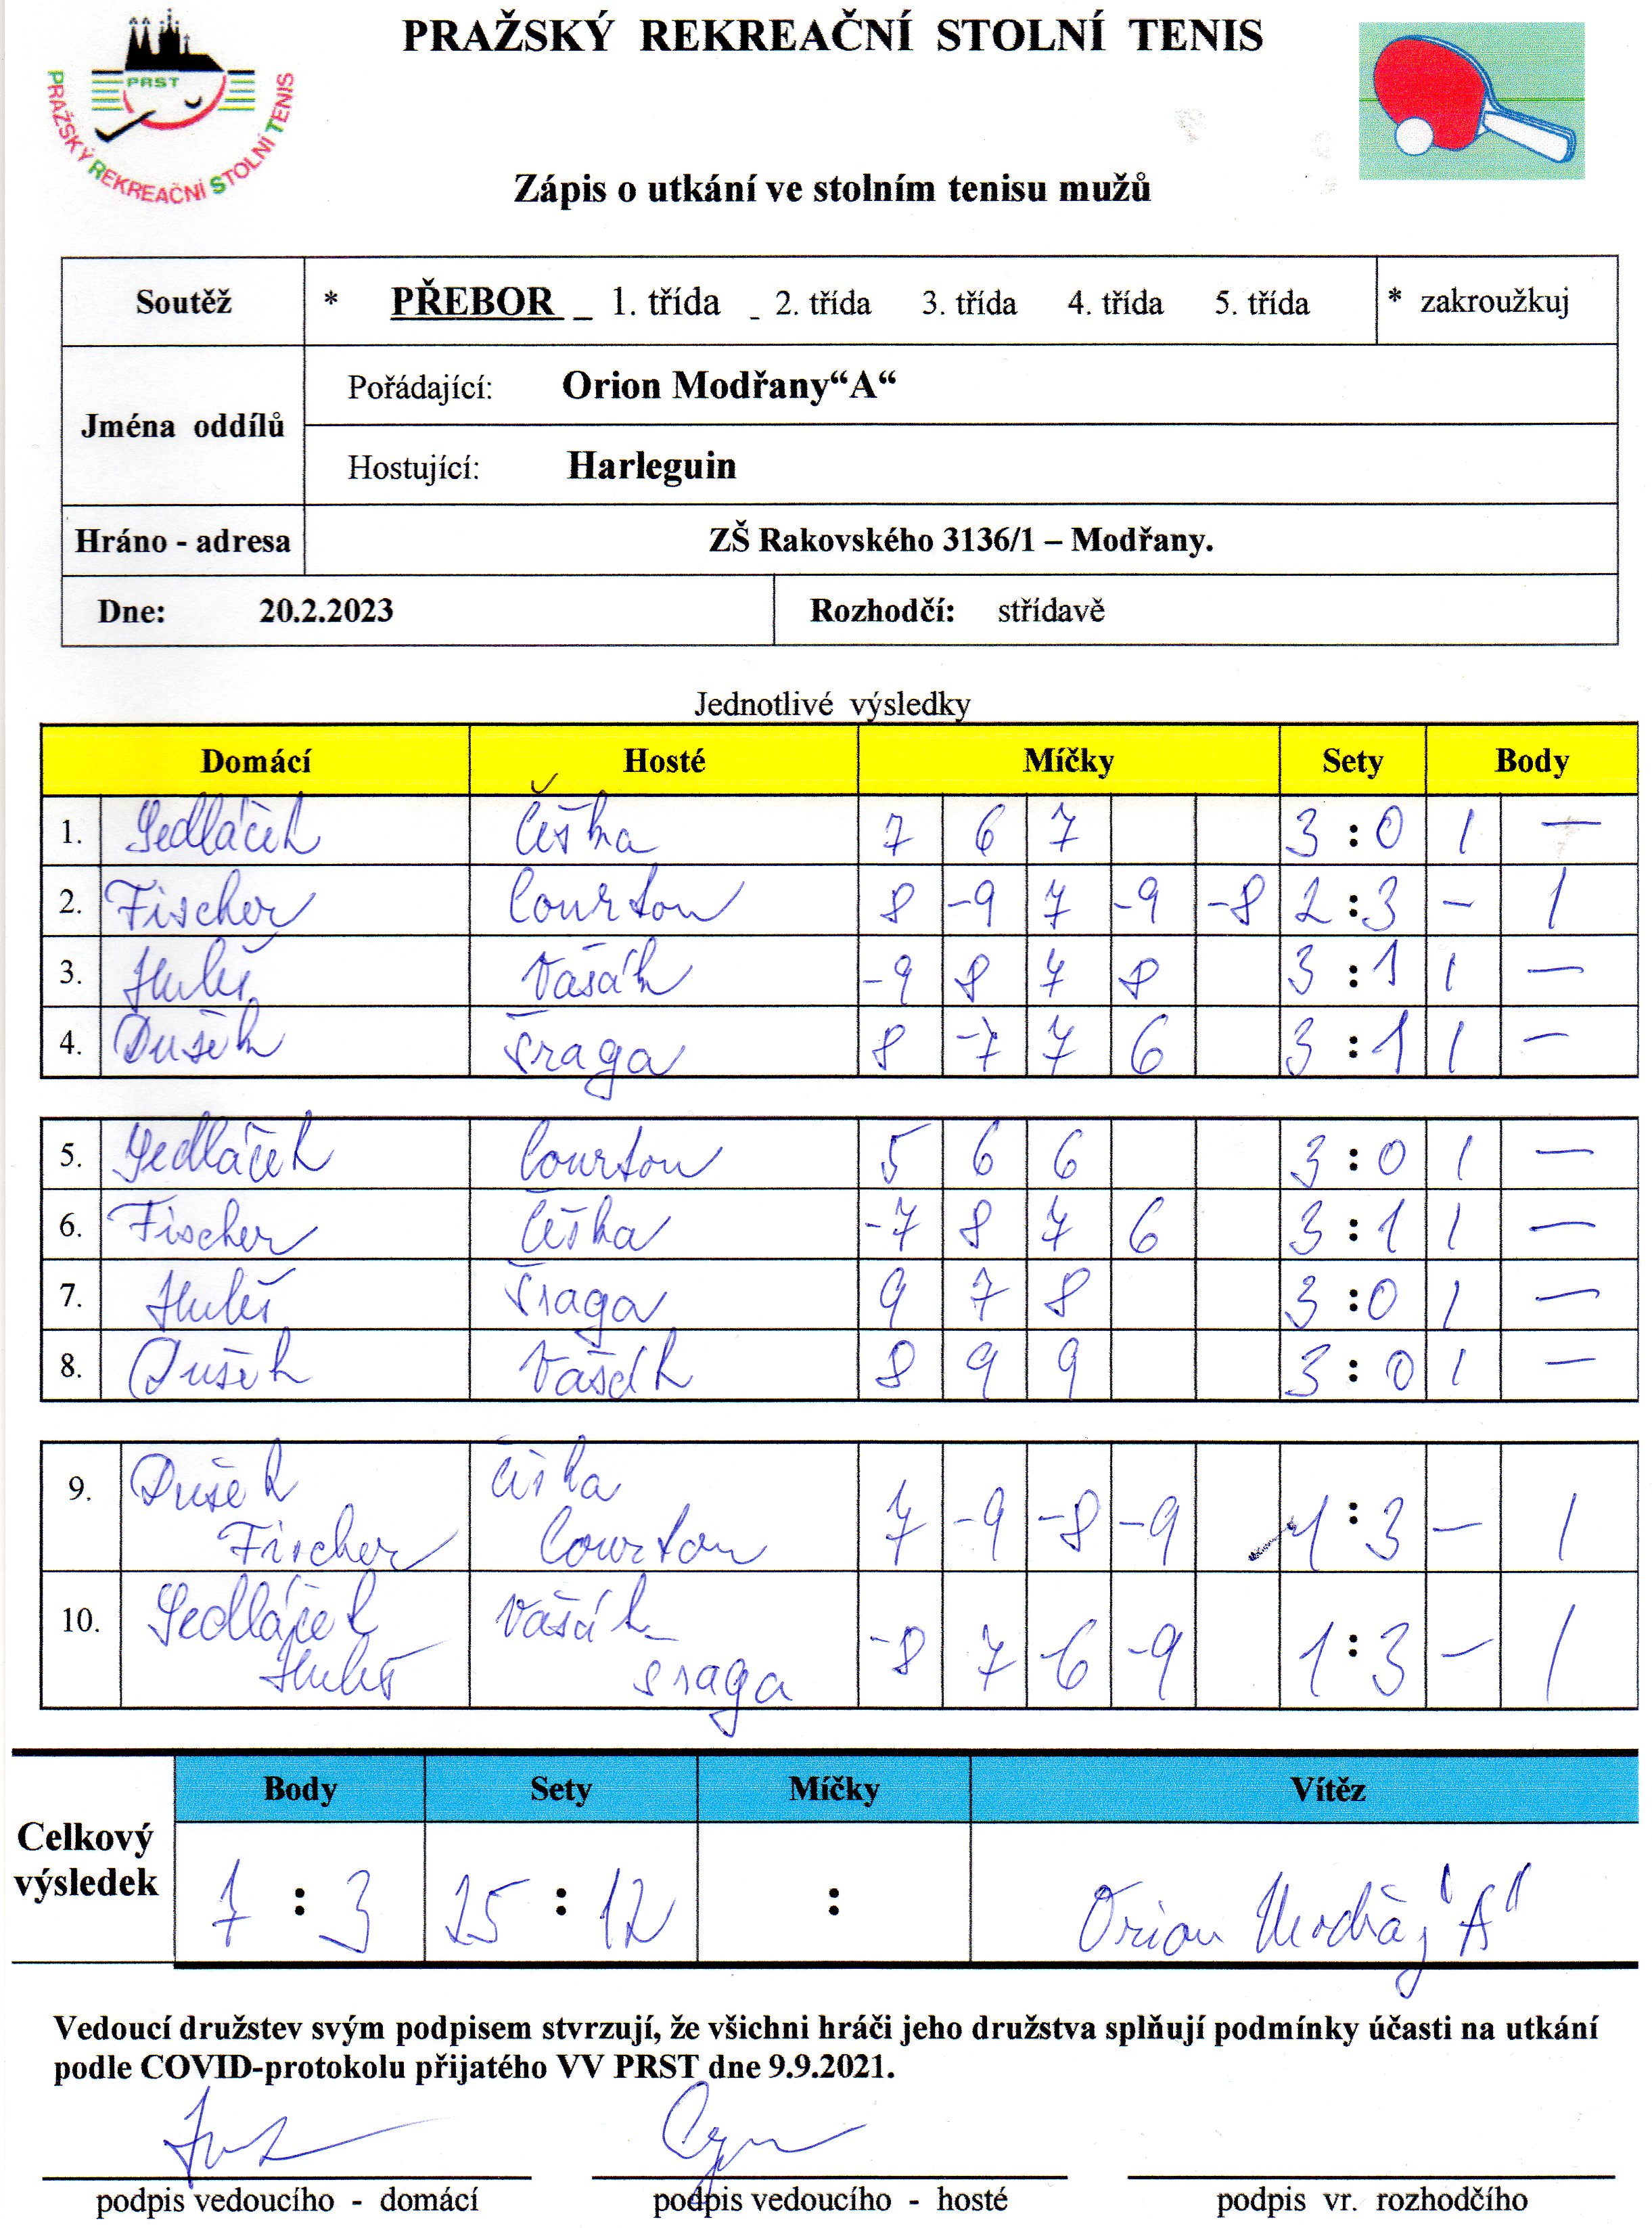 PRAŽSKÝ REKREAČNÍ STOLNÍ TENIS
PRST
PRAŽSKÝ REKREAČNÍ STOLNÍ TENIS
Zápis o utkání ve stolním tenisu mužů
Soutěž * PŘEBOR _ 1. třída - 2. třída 3. třída 4. třída 5. třída * zakroužkuj
Jména oddílů
Pořádající: Orion Modřany“A“
Hostující: Harleguin
Hráno - adresa ZŠ Rakovského 3136/1 – Modřany.
Dne: 20.2.2023 Rozhodčí: střídavě
Jednotlivé výsledky
Domácí Hosté Míčky Sety Body
1. Sedláček Češka 7 6 7 3 : 0 1 —
2. Fischer Courton 8 -9 7 -9 -8 2 : 3 — 1
3. Huleš Vašák -9 8 7 8 3 : 1 1 —
4. Dušek Šraga 8 -7 7 6 3 : 1 1 —
5. Sedláček Courton 5 6 6 3 : 0 1 —
6. Fischer Češka -7 8 7 6 3 : 1 1 —
7. Huleš Šraga 9 7 8 3 : 0 1 —
8. Dušek Vašák 8 9 9 3 : 0 1 —
9. Dušek Češka
Fischer Courton 7 -9 -8 -9 1 : 3 — 1
10. Sedláček Vašák
Huleš Sraga -8 7 -6 -9 1 : 3 — 1
Body Sety Míčky Vítěz
Celkový výsledek 7 : 3 25 : 12 : Orion "A"
Vedoucí družstev svým podpisem stvrzují, že všichni hráči jeho družstva splňují podmínky účasti na utkání
podle COVID-protokolu přijatého VV PRST dne 9.9.2021.
podpis vedoucího - domácí podpis vedoucího - hosté podpis vr. rozhodčího